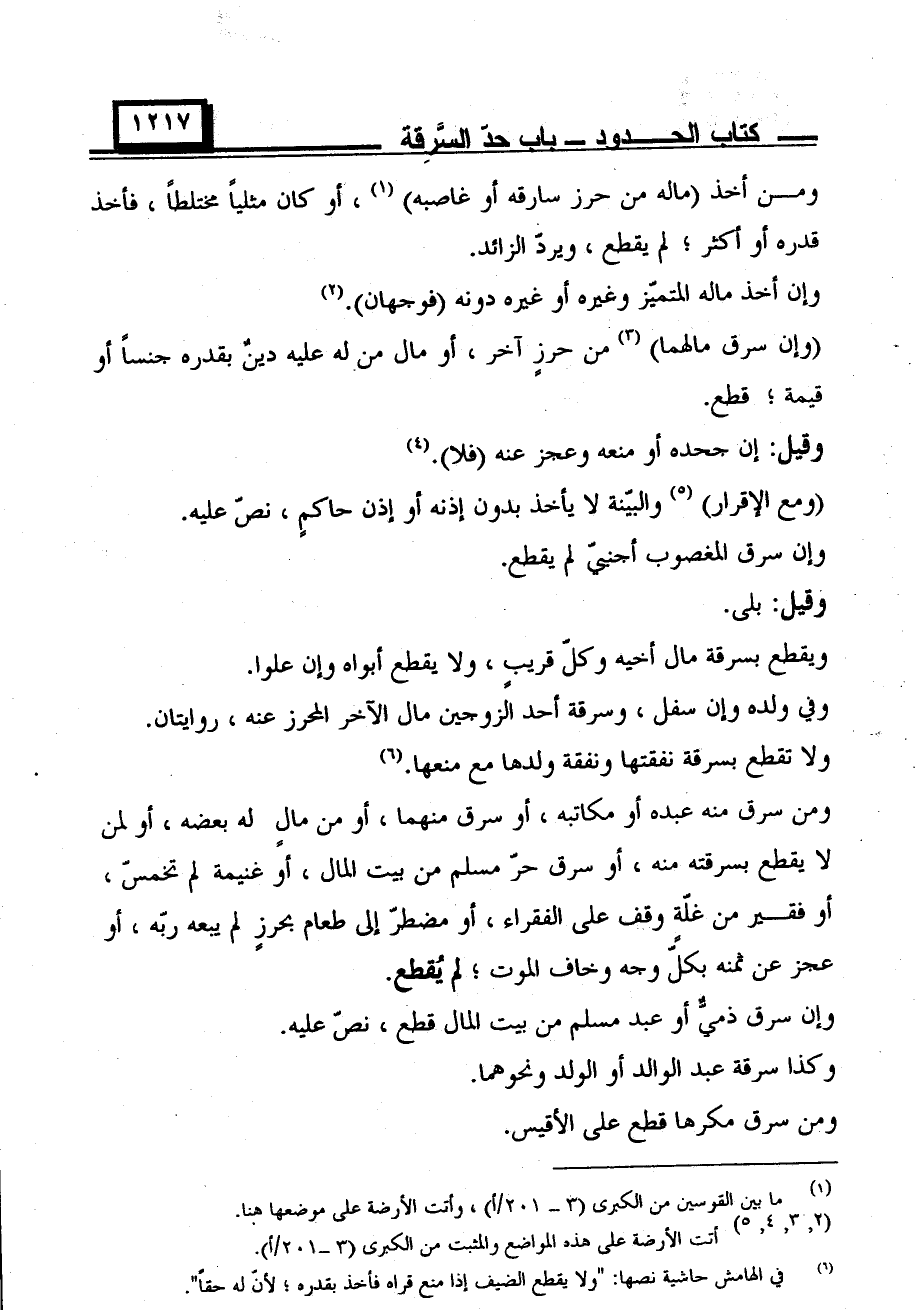 كتاب الحـــدود – باب حدّ السَّرقة
١٢١٧
ومـــن أخذ (ماله من حرز سارقه أو غاصبه) (١) ، أو كان مثلياً مختلطاً ، فأخذ
قدره أو أكثر ؛ لم يقطع ، ويردّ الزائد.
وإن أخذ ماله المتميّز وغيره أو غيره دونه (فوجهان).(٢)
(وإن سرق مالهما) (٣) من حرزٍ آخر ، أو مال من له عليه دينٌ بقدره جنساً أو
قيمة ؛ قطع.
وقيل: إن جحده أو منعه وعجز عنه (فلا).(٤)
(ومع الإقرار) (٥) والبيّنة لا يأخذ بدون إذنه أو إذن حاكمٍ ، نصّ عليه.
وإن سرق المغصوب أجنبيّ لم يقطع.
وقيل: بلى.
ويقطع بسرقة مال أخيه وكلّ قريبٍ ، ولا يقطع أبواه وإن علوا.
وفي ولده وإن سفل ، وسرقة أحد الزوجين مال الآخر المحرز عنه ، روايتان.
ولا تقطع بسرقة نفقتها ونفقة ولدها مع منعها.(٦)
ومن سرق منه عبده أو مكاتبه ، أو سرق منهما ، أو من مالٍ له بعضه ، أو لمن
لا يقطع بسرقته منه ، أو سرق حرّ مسلم من بيت المال ، أو غنيمة لم تخمسّ ،
أو فقـــير من غلّةٍ وقف على الفقراء ، أو مضطرّ إلى طعام بحرزٍ لم يبعه ربّه ، أو
عجز عن ثمنه بكلّ وجه وخاف الموت ؛ لم يُقطع.
وإن سرق ذميٌّ أو عبد مسلم من بيت المال قطع ، نصّ عليه.
وكذا سرقة عبد الوالد أو الولد ونحوهما.
ومن سرق مكرها قطع على الأقيس.
(١) ما بين القوسين من الكبرى (٣ – ٢٠١/أ) ، وأتت الأرضة على موضعها هنا.
(٢, ٣, ٤, ٥) أتت الأرضة على هذه المواضع والمثبت من الكبرى (٣ –٢٠١/أ).
(٦) في الهامش حاشية نصها: "ولا يقطع الضيف إذا منع قراه فأخذ بقدره ؛ لأنّ له حقاً".